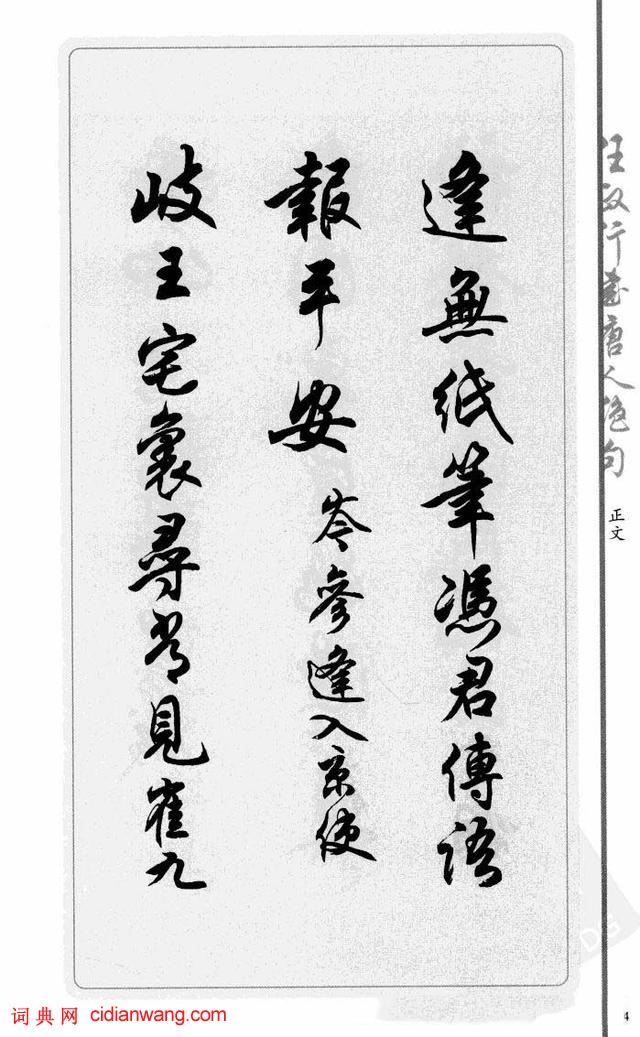 逢無紙筆憑君傳語
報平安 岑參逢入京使
岐王宅裏尋常見崔九
任政行書唐人绝句
正文
4
词典网 cidianwang.com
DG